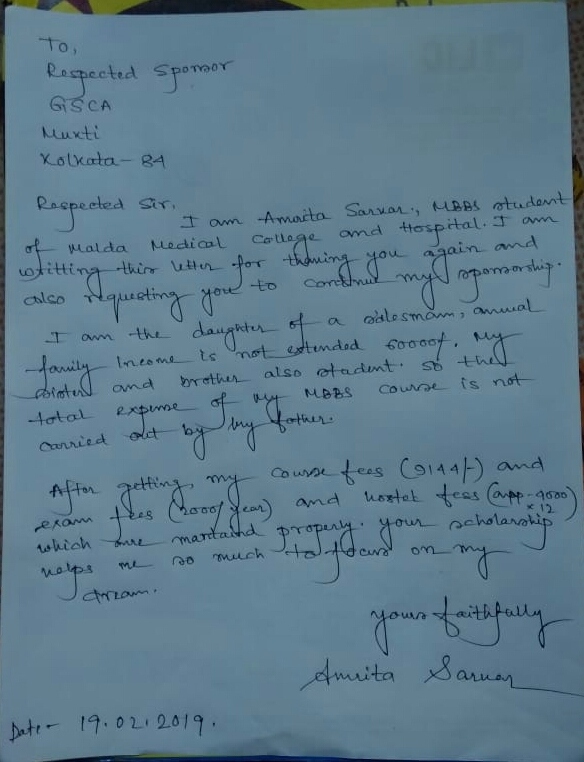 To,
Respected Sponsor
GISCA
Muxti
Kolkata - 84
Respected Sir,
I am Amrita Sarkar, MBBS student
of Malda Medical College and Hospital. I am
writting this letter for thanking you again and
also requesting you to continue my sponsorship.
I am the daughter of a salesman, annual
family income is not extended 60000/. My
sister and brother also student. so the
total expense of my MBBS course is not
carried out by my father.
After getting, my course fees (9144/-) and
exam fees (2000/year) and hostel fess (app-4000
×12)
which are mantaind properly. your scholarship
helps me so much to focus on my
dream.
yours faithfully
Amrita Sarkar
Date - 19.02.2019.